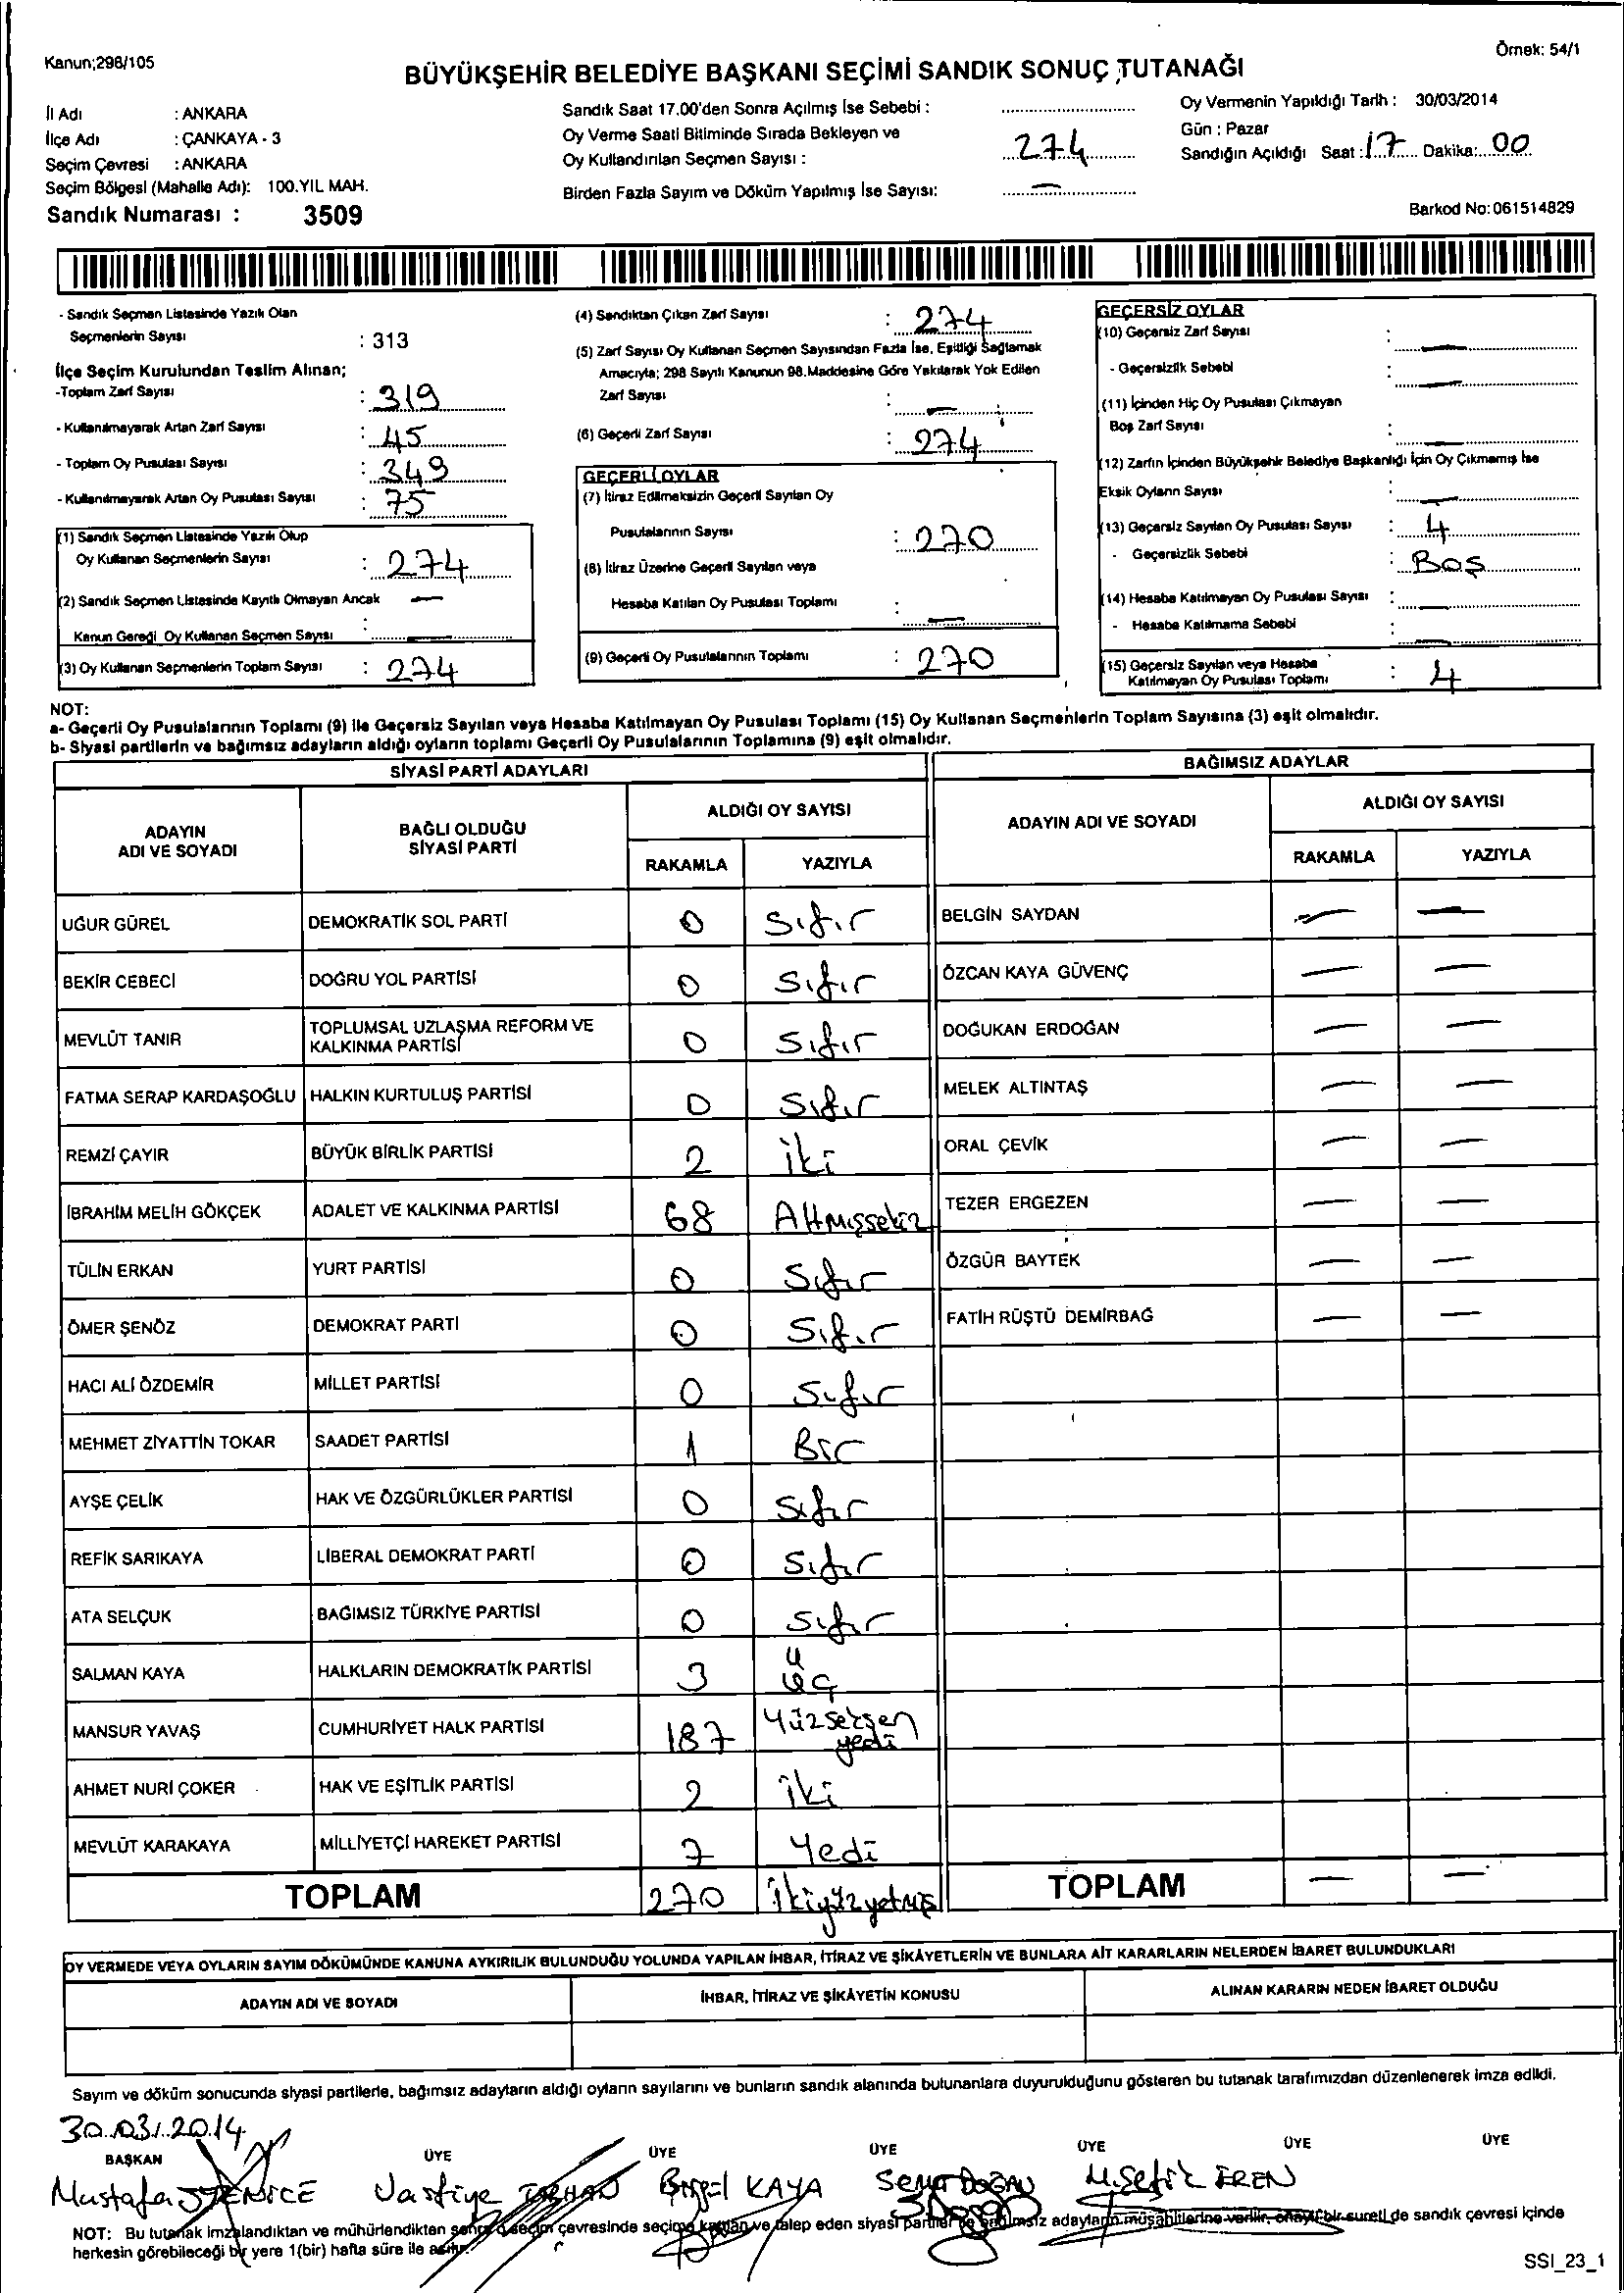 Kanun;298/105
Örnek: 54/1
BÜYÜKŞEHİR BELEDİYE BAŞKANI SEÇİMİ SANDIK SONUÇ TUTANAĞI
İl Adı : ANKARA
İlçe Adı : ÇANKAYA - 3
Seçim Çevresi : ANKARA
Seçim Bölgesi (Mahalle Adı): 100.YIL MAH.
Sandık Numarası : 3509
Sandık Saat 17.00'den Sonra Açılmış İse Sebebi :
Oy Verme Saati Bitiminde Sırada Bekleyen ve
Oy Kullandırılan Seçmen Sayısı : 274
Birden Fazla Sayım ve Döküm Yapılmış İse Sayısı: —
Oy Vermenin Yapıldığı Tarih : 30/03/2014
Gün : Pazar
Sandığın Açıldığı Saat : 17 Dakika: 00
Barkod No: 061514829
- Sandık Seçmen Listesinde Yazılı Olan
Seçmenlerin Sayısı : 313
İlçe Seçim Kurulundan Teslim Alınan;
-Toplam Zarf Sayısı : 319
- Kullanılmayarak Artan Zarf Sayısı : 45
- Toplam Oy Pusulası Sayısı : 349
- Kullanılmayarak Artan Oy Pusulası Sayısı : 75
(1) Sandık Seçmen Listesinde Yazılı Olup
Oy Kullanan Seçmenlerin Sayısı : 274
(2) Sandık Seçmen Listesinde Kayıtlı Olmayan Ancak —
Kanun Gereği Oy Kullanan Seçmen Sayısı : —
(3) Oy Kullanan Seçmenlerin Toplam Sayısı : 274
(4) Sandıktan Çıkan Zarf Sayısı : 274
(5) Zarf Sayısı Oy Kullanan Seçmen Sayısından Fazla İse, Eşitliği Sağlamak
Amacıyla; 298 Sayılı Kanunun 98.Maddesine Göre Yakılarak Yok Edilen
Zarf Sayısı : —
(6) Geçerli Zarf Sayısı : 274
GEÇERLİ OYLAR
(7) İtiraz Edilmeksizin Geçerli Sayılan Oy
Pusulalarının Sayısı : 270
(8) İtiraz Üzerine Geçerli Sayılan veya
Hesaba Katılan Oy Pusulası Toplamı : —
(9) Geçerli Oy Pusulalarının Toplamı : 270
GEÇERSİZ OYLAR
(10) Geçersiz Zarf Sayısı : —
- Geçersizlik Sebebi : —
(11) İçinden Hiç Oy Pusulası Çıkmayan
Boş Zarf Sayısı : —
(12) Zarfın İçinden Büyükşehir Belediye Başkanlığı İçin Oy Çıkmamış İse
Eksik Oyların Sayısı : —
(13) Geçersiz Sayılan Oy Pusulası Sayısı : 4
- Geçersizlik Sebebi : Boş
(14) Hesaba Katılmayan Oy Pusulası Sayısı : —
- Hesaba Katılmama Sebebi : —
(15) Geçersiz Sayılan veya Hesaba
Katılmayan Oy Pusulası Toplamı : 4
NOT:
a- Geçerli Oy Pusulalarının Toplamı (9) ile Geçersiz Sayılan veya Hesaba Katılmayan Oy Pusulası Toplamı (15) Oy Kullanan Seçmenlerin Toplam Sayısına (3) eşit olmalıdır.
b- Siyasi partilerin ve bağımsız adayların aldığı oyların toplamı Geçerli Oy Pusulalarının Toplamına (9) eşit olmalıdır.
SİYASİ PARTİ ADAYLARI
ADAYIN ADI VE SOYADI
BAĞLI OLDUĞU SİYASİ PARTİ
ALDIĞI OY SAYISI
RAKAMLA YAZIYLA
UĞUR GÜREL DEMOKRATİK SOL PARTİ 0 Sıfır
BEKİR CEBECİ DOĞRU YOL PARTİSİ 0 Sıfır
MEVLÜT TANIR TOPLUMSAL UZLAŞMA REFORM VE KALKINMA PARTİSİ 0 Sıfır
FATMA SERAP KARDAŞOĞLU HALKIN KURTULUŞ PARTİSİ 0 Sıfır
REMZİ ÇAYIR BÜYÜK BİRLİK PARTİSİ 2 iki
İBRAHİM MELİH GÖKÇEK ADALET VE KALKINMA PARTİSİ 68 Altmışsekiz
TÜLİN ERKAN YURT PARTİSİ 0 Sıfır
ÖMER ŞENÖZ DEMOKRAT PARTİ 0 Sıfır
HACI ALİ ÖZDEMİR MİLLET PARTİSİ 0 Sıfır
MEHMET ZİYATTİN TOKAR SAADET PARTİSİ 1 Bir
AYŞE ÇELİK HAK VE ÖZGÜRLÜKLER PARTİSİ 0 Sıfır
REFİK SARIKAYA LİBERAL DEMOKRAT PARTİ 0 Sıfır
ATA SELÇUK BAĞIMSIZ TÜRKİYE PARTİSİ 0 Sıfır
SALMAN KAYA HALKLARIN DEMOKRATİK PARTİSİ 3 üç
MANSUR YAVAŞ CUMHURİYET HALK PARTİSİ 187 Yüzseksen yedi
AHMET NURİ ÇOKER HAK VE EŞİTLİK PARTİSİ 2 iki
MEVLÜT KARAKAYA MİLLİYETÇİ HAREKET PARTİSİ 7 Yedi
TOPLAM 270 ikiyüzyetmiş
BAĞIMSIZ ADAYLAR
ADAYIN ADI VE SOYADI
ALDIĞI OY SAYISI
RAKAMLA YAZIYLA
BELGİN SAYDAN — —
ÖZCAN KAYA GÜVENÇ — —
DOĞUKAN ERDOĞAN — —
MELEK ALTINTAŞ — —
ORAL ÇEVİK — —
TEZER ERGEZEN — —
ÖZGÜR BAYTEK — —
FATİH RÜŞTÜ DEMİRBAĞ — —
TOPLAM — —
OY VERMEDE VEYA OYLARIN SAYIM DÖKÜMÜNDE KANUNA AYKIRILIK BULUNDUĞU YOLUNDA YAPILAN İHBAR, İTİRAZ VE ŞİKÂYETLERİN VE BUNLARA AİT KARARLARIN NELERDEN İBARET BULUNDUKLARI
ADAYIN ADI VE SOYADI
İHBAR, İTİRAZ VE ŞİKÂYETİN KONUSU
ALINAN KARARIN NEDEN İBARET OLDUĞU
Sayım ve döküm sonucunda siyasi partilerle, bağımsız adayların aldığı oyların sayılarını ve bunların sandık alanında bulunanlara duyurulduğunu gösteren bu tutanak tarafımızdan düzenlenerek imza edildi.
30.03.2014
BAŞKAN ÜYE ÜYE ÜYE ÜYE ÜYE ÜYE
Mustafa Vasfiye Birgel KAYA Sema DOĞAN M.Şefik EREN
NOT: Bu tutanak imzalandıktan ve mühürlendikten sonra seçim çevresinde seçime katılan ve talep eden siyasi partiler ile bağımsız adayların müşahitlerine verilir, onaylı bir sureti de sandık çevresi içinde
herkesin görebileceği bir yere 1(bir) hafta süre ile asılır.
SSI_23_1